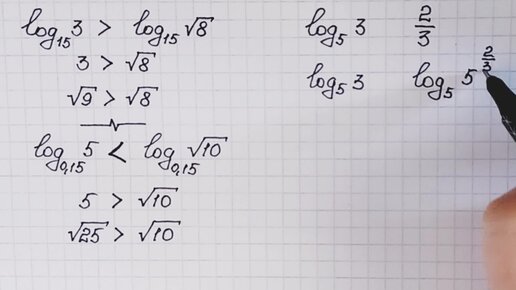 log₁₅ 3 > log₁₅ √8
3 > √8
√9 > √8
log₀,₁₅ 5 < log₀,₁₅ √10
5 > √10
√25 > √10
log₅ 3 2/3
log₅ 3 log₅ 5^(2/3)